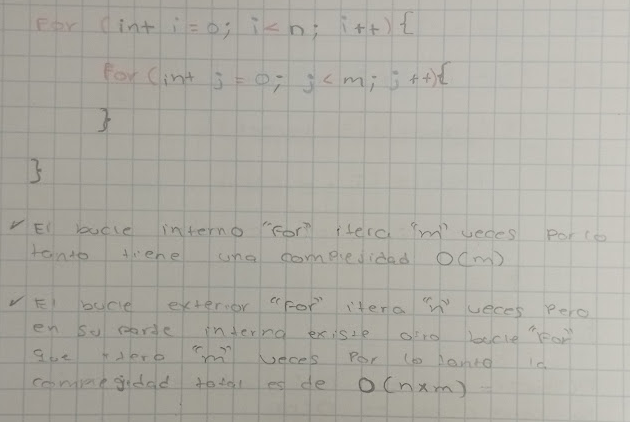 For (int i = 0; i < n; i++) {
for (int j = 0; j < m; j++){
}
}
✓ El bucle interno "for" itera "m" veces por lo
tanto tiene una complejidad O(m)
✓ El bucle exterior "for" itera "n" veces pero
en su parte interna existe otro bucle "for"
que itera "m" veces por lo tanto la
complejidad total es de O(n×m)